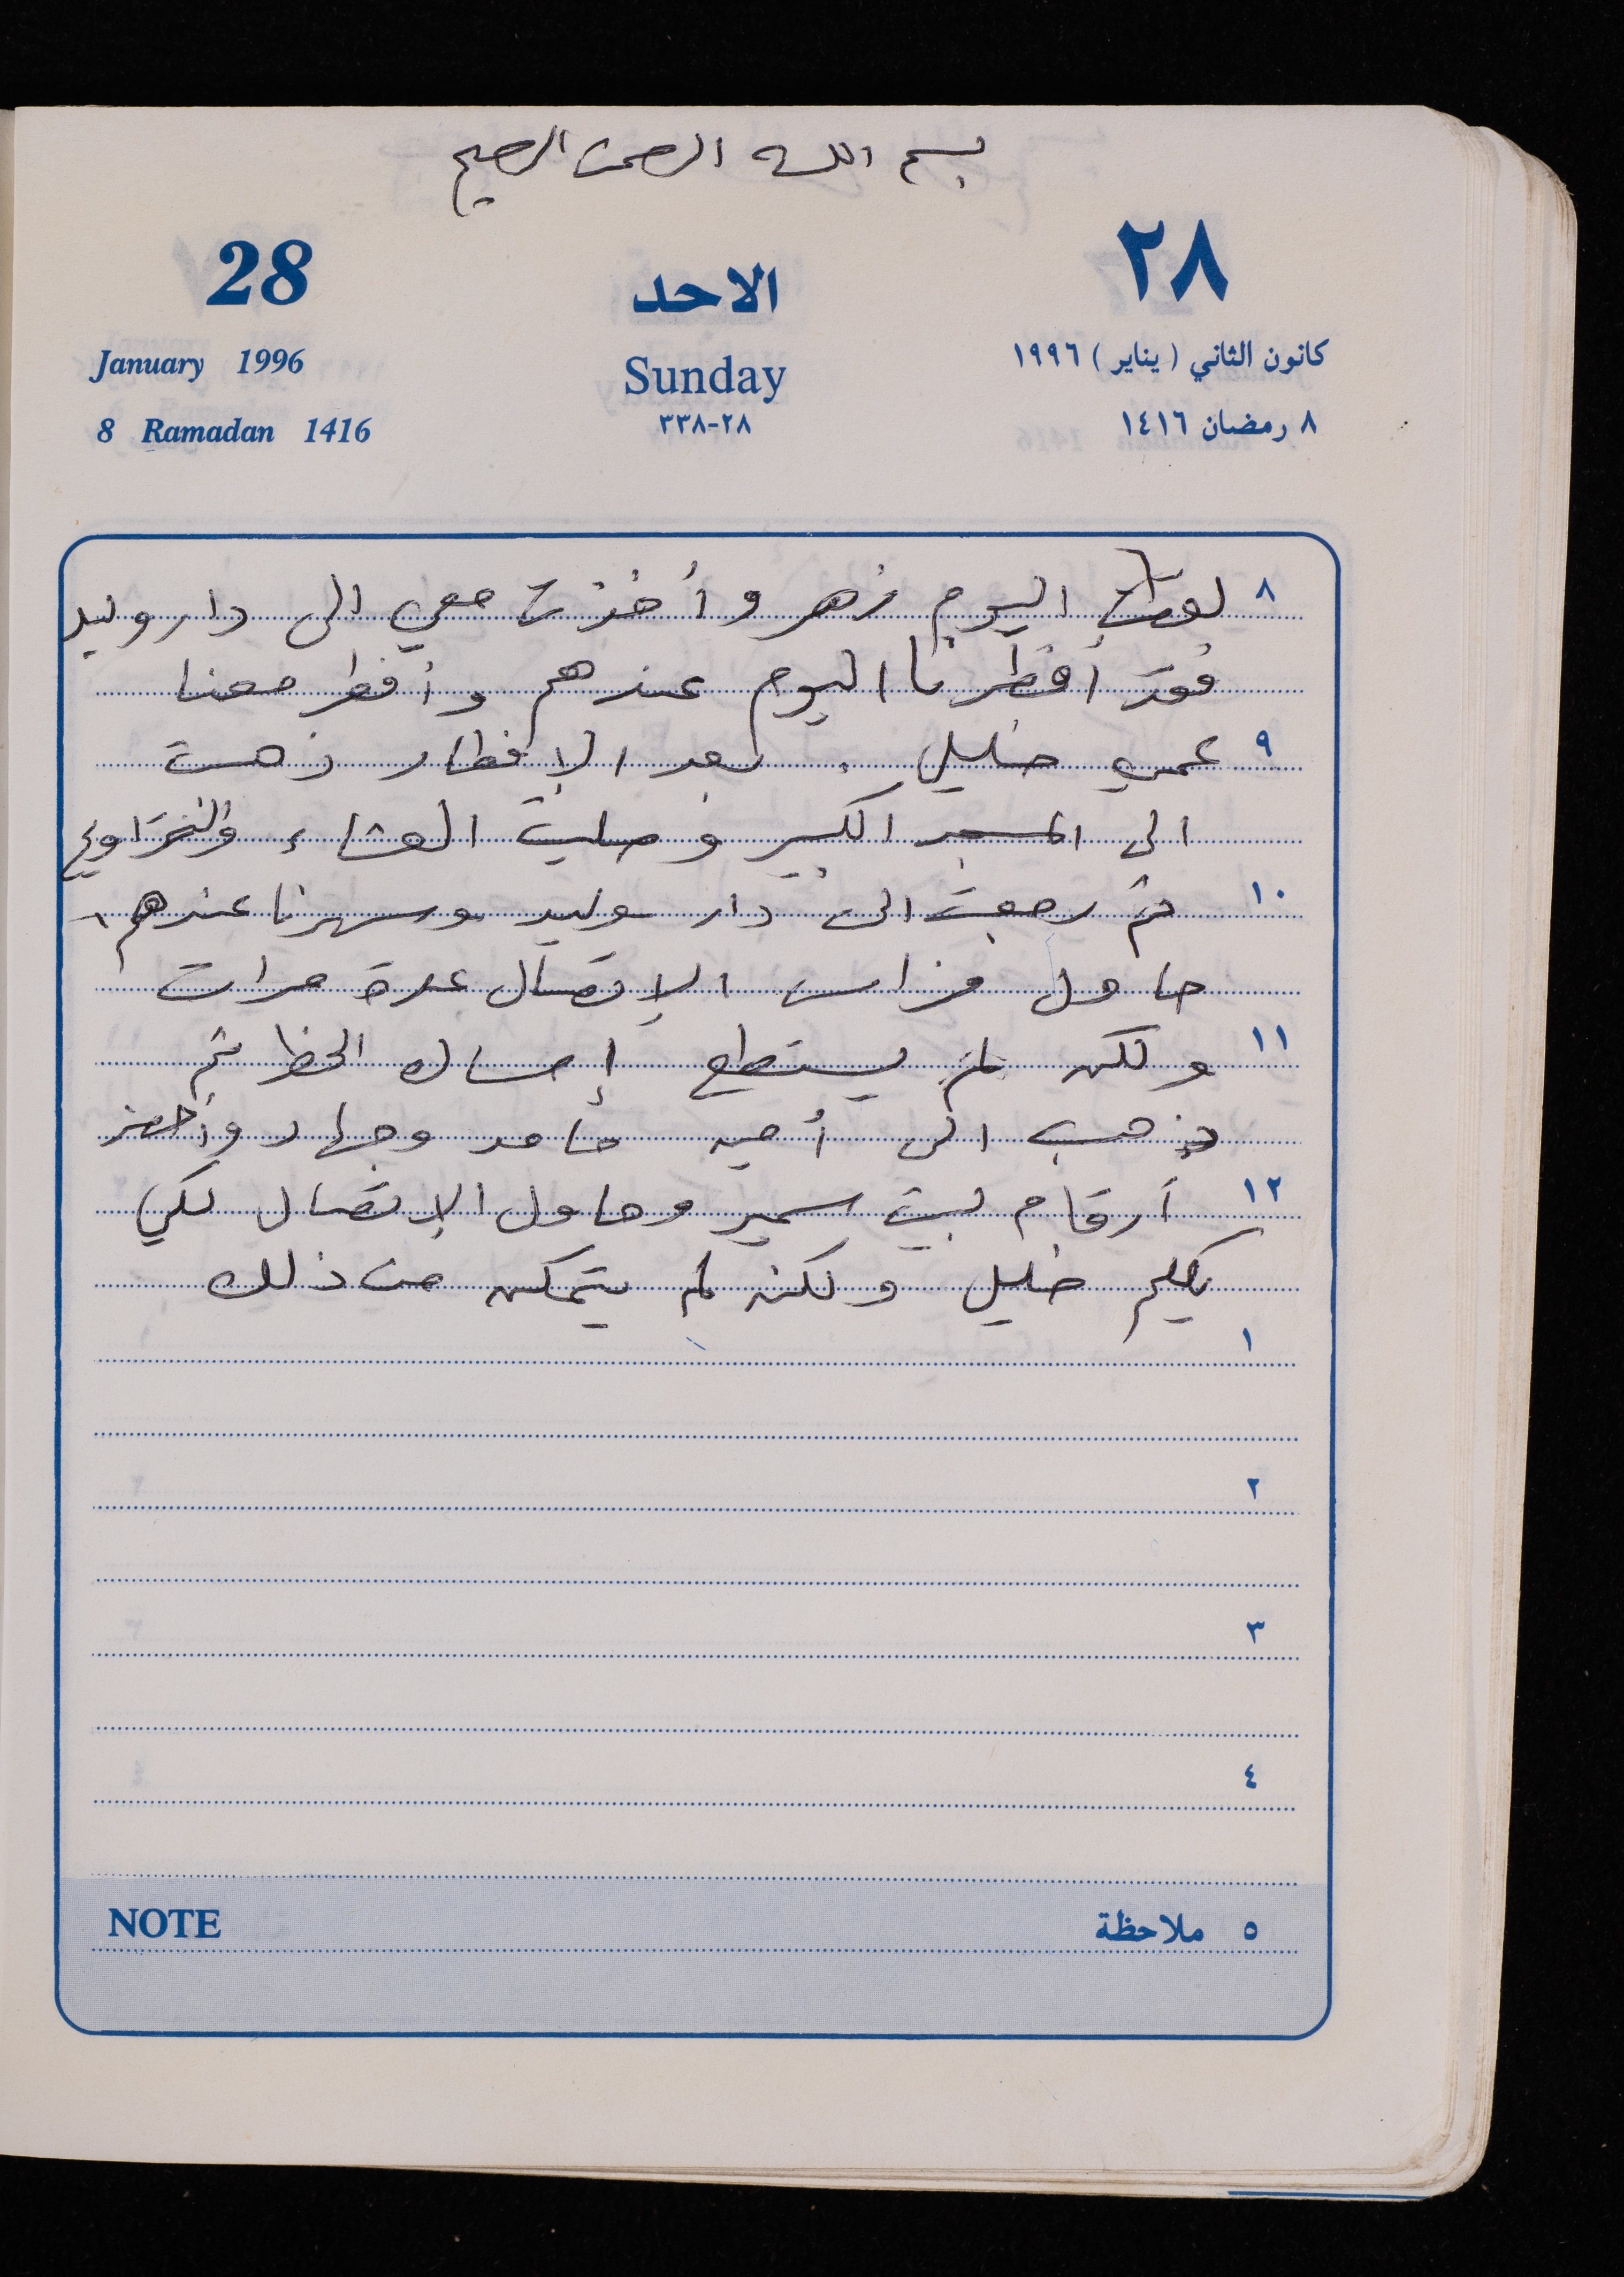 بسم الله الرحمن الرحيم
28 الاحد ٢٨
January 1996 Sunday كانون الثاني (يناير) ١٩٩٦
8 Ramadan 1416 ٢٨-٣٣٨ ٨ رمضان ١٤١٦
٨ اليوم وأخذت معي الى دار وليد
فقد أفطرنا اليوم عندهم وأفطر معنا
٩ عمي خليل . بعد الإفطار ذهبت
الى المسجد الكبير وصليت العشاء والتراويح
١٠ ثم رجعت الى دار وليد وسهرنا عندهم
حاول فراس الإتصال عدة مرات
١١ ولكن لم يستطع إمساك الخط ثم
ذهب الى أخيه حامد وجهاد وأحضر
١٢ أرقام لبيت سمير وحاول الإتصال لكي
يكلم خليل ولكنه لم يتمكن من ذلك
١
٢
٣
٤
NOTE ٥ ملاحظة